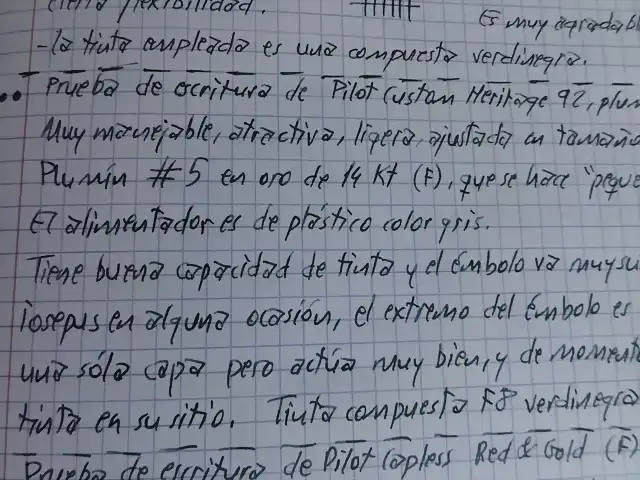 cierta flexibilidad.
Es muy agradabl
- la tinta empleada es una compuesta verdinegra.
Prueba de escritura de Pilot Custom Heritage 92, plum
Muy manejable, atractiva, ligera, ajustada en tamaño
Plumín #5 en oro de 14 Kt (F), que se hace "peque
El alimentador es de plástico color gris.
Tiene buena capacidad de tinta y el émbolo va muy su
en alguna ocasión, el extremo del émbolo es
una sóla capa pero actúa muy bien, y de momento
tinta en su sitio. Tinta compuesta F8 verdinegra
Prueba de escritura de Pilot Capless Red & Gold (F)